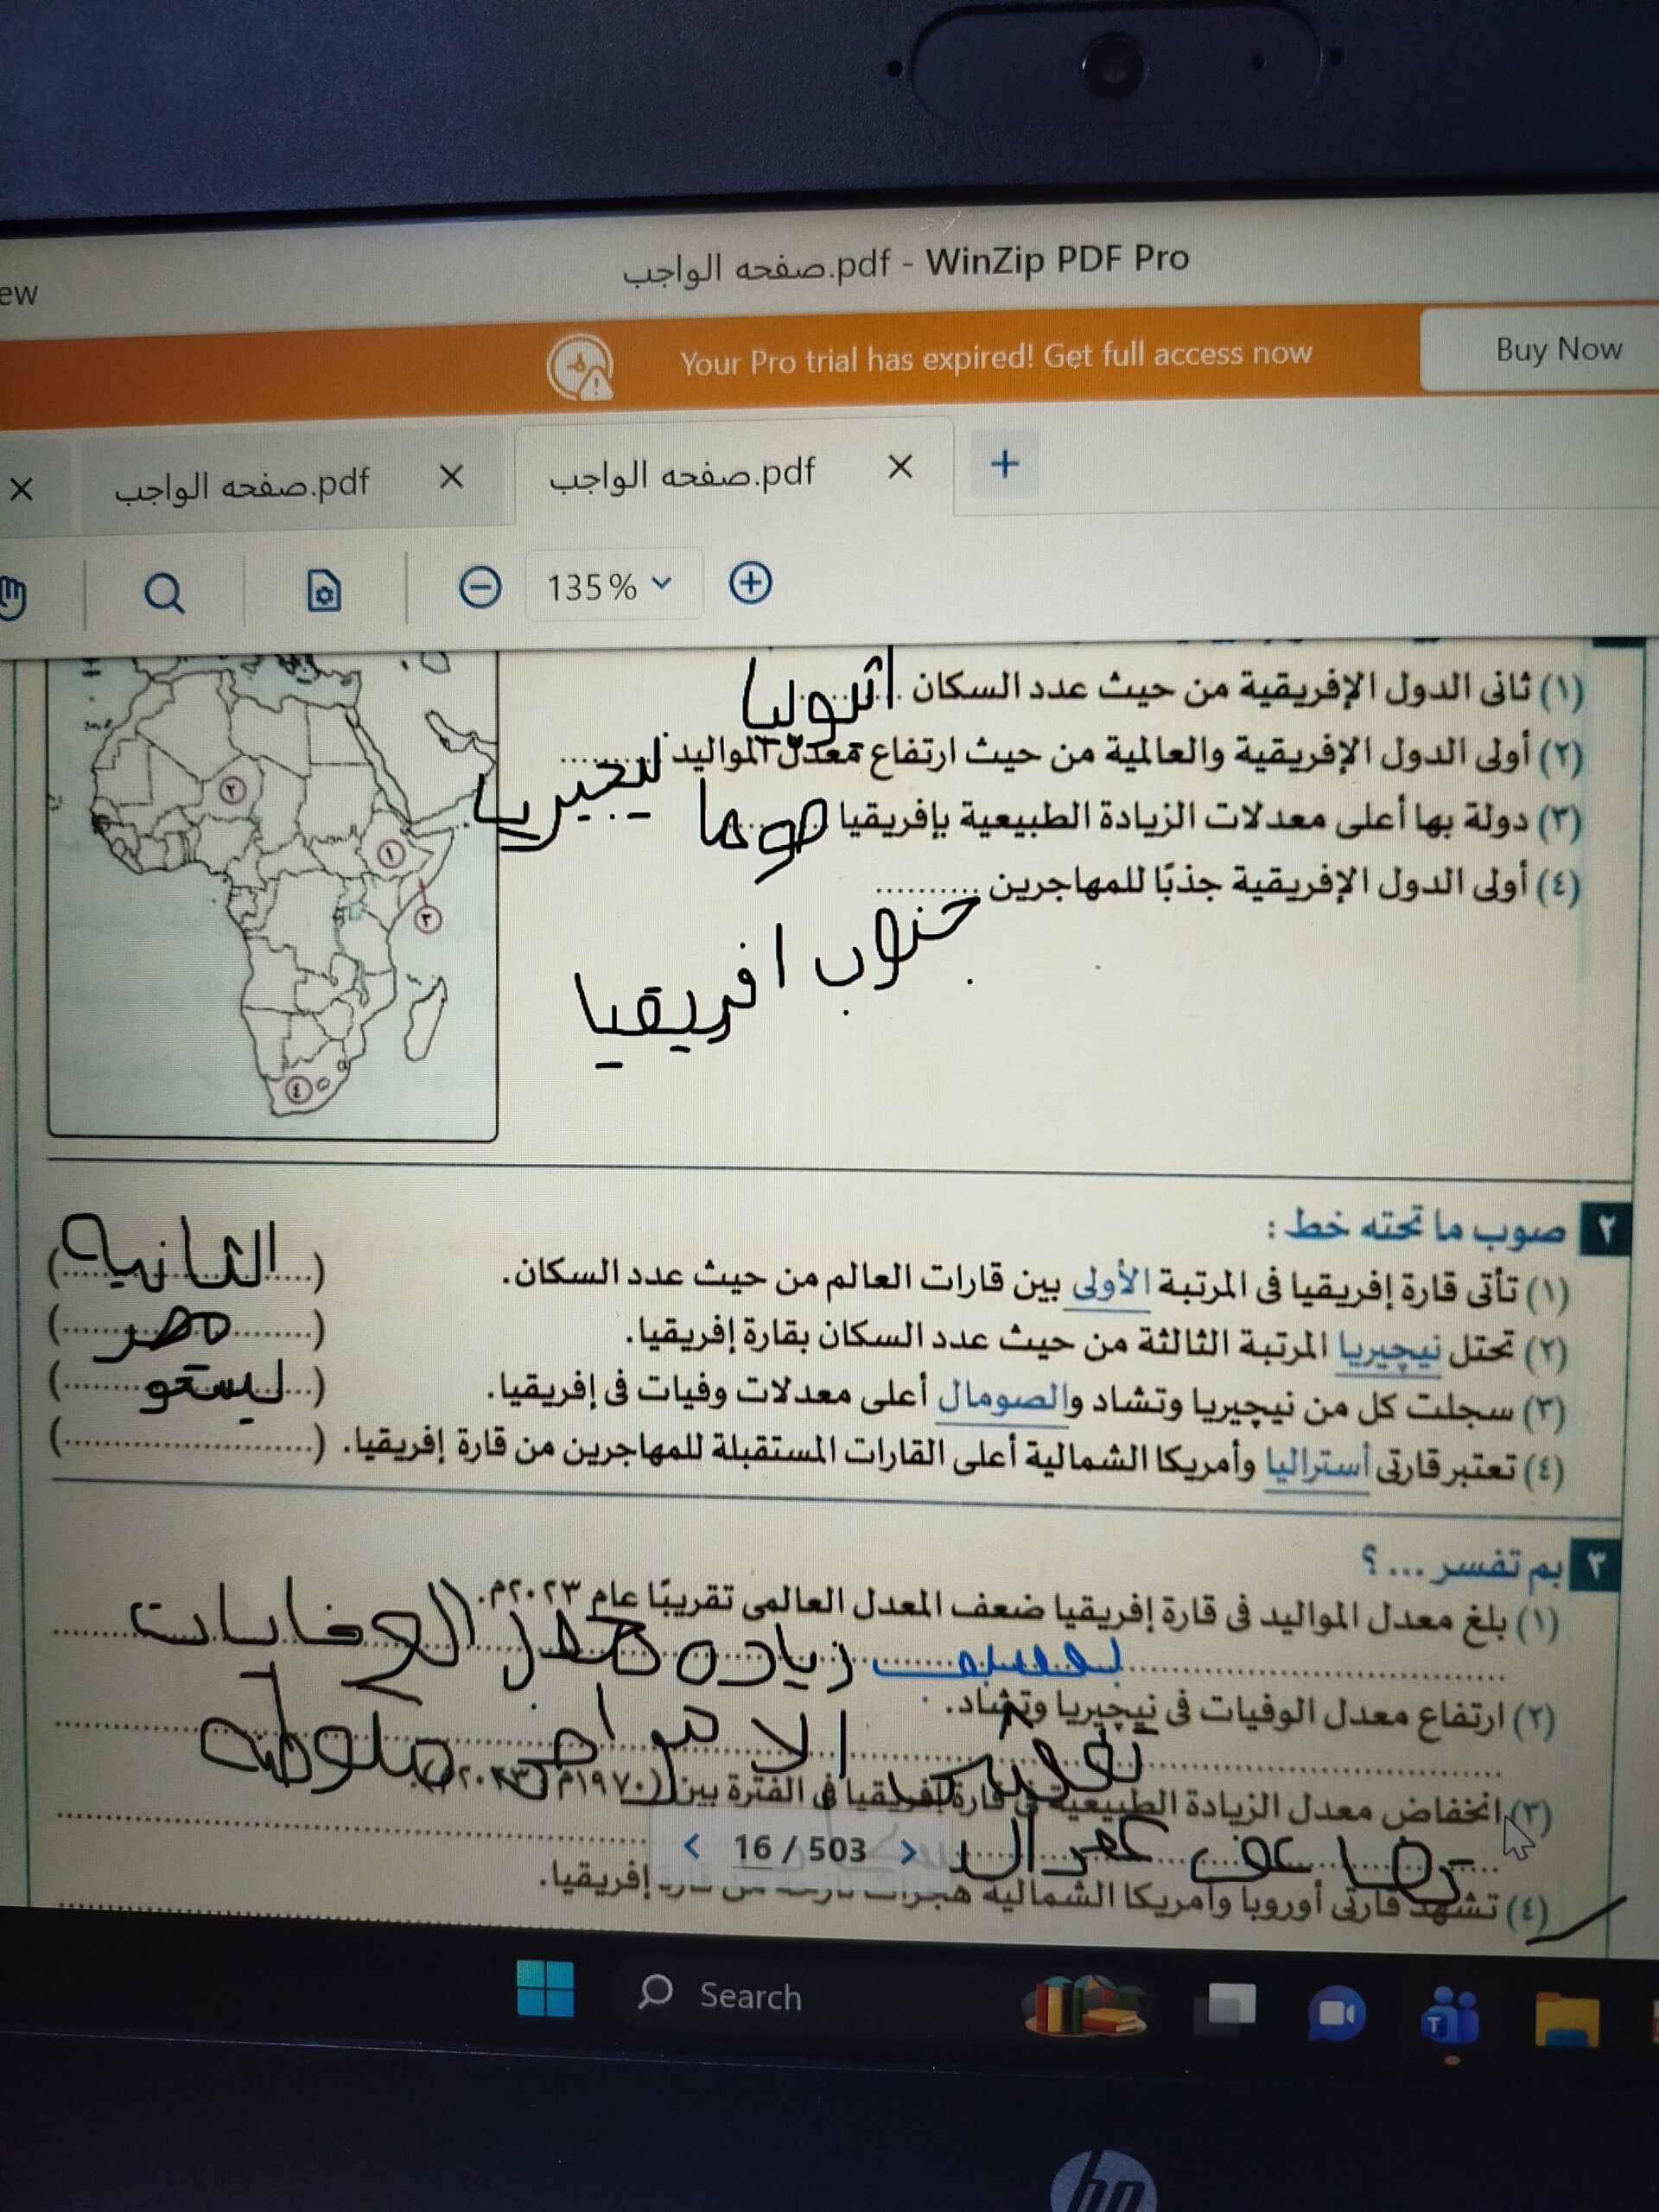 صفحه الواجب.pdf - WinZip PDF Pro
ew
Your Pro trial has expired! Get full access now
Buy Now
صفحه الواجب.pdf
صفحه الواجب.pdf
135%
(١) ثانى الدول الإفريقية من حيث عدد السكان .......... اثيوبيا
(٢) أولى الدول الإفريقية والعالمية من حيث ارتفاع معدل المواليد ..........
(٣) دولة بها أعلى معدلات الزيادة الطبيعية بإفريقيا ..........
(٤) أولى الدول الإفريقية جذبًا للمهاجرين ..........
جنوب افريقيا
٢
١
٣
٤
٢ صوب ما تحته خط :
(١) تأتى قارة إفريقيا فى المرتبة الأولى بين قارات العالم من حيث عدد السكان. (الثانيه)
(٢) تحتل نيچيريا المرتبة الثالثة من حيث عدد السكان بقارة إفريقيا. (مصر)
(٣) سجلت كل من نيچيريا وتشاد والصومال أعلى معدلات وفيات فى إفريقيا. (ليستو)
(٤) تعتبر قارتى أستراليا وأمريكا الشمالية أعلى القارات المستقبلة للمهاجرين من قارة إفريقيا. (..........)
٣ بم تفسر ... ؟
(١) بلغ معدل المواليد فى قارة إفريقيا ضعف المعدل العالمى تقريبًا عام ٢٠٢٣م.
زياده
(٢) ارتفاع معدل الوفيات فى نيچيريا وتشاد.
(٣) انخفاض معدل الزيادة الطبيعية فى قارة إفريقيا فى الفترة بين (١٩٧٠م - ٢٠٢٣م).
16 / 503
(٤) تشهد قارتى أوروبا وأمريكا الشمالية هجرات نازحة من قارة إفريقيا.
Search
hp